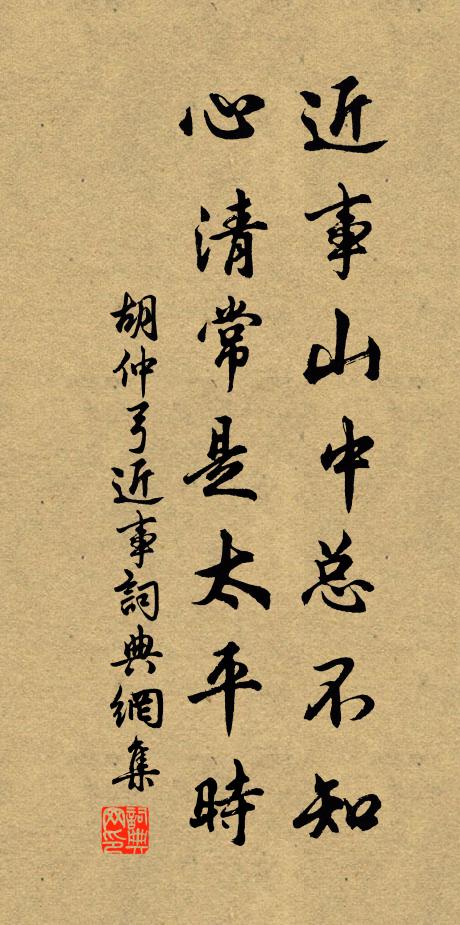 近事山中总不知
心清常是太平時
胡仲弓近事詞典網集
詞典网印